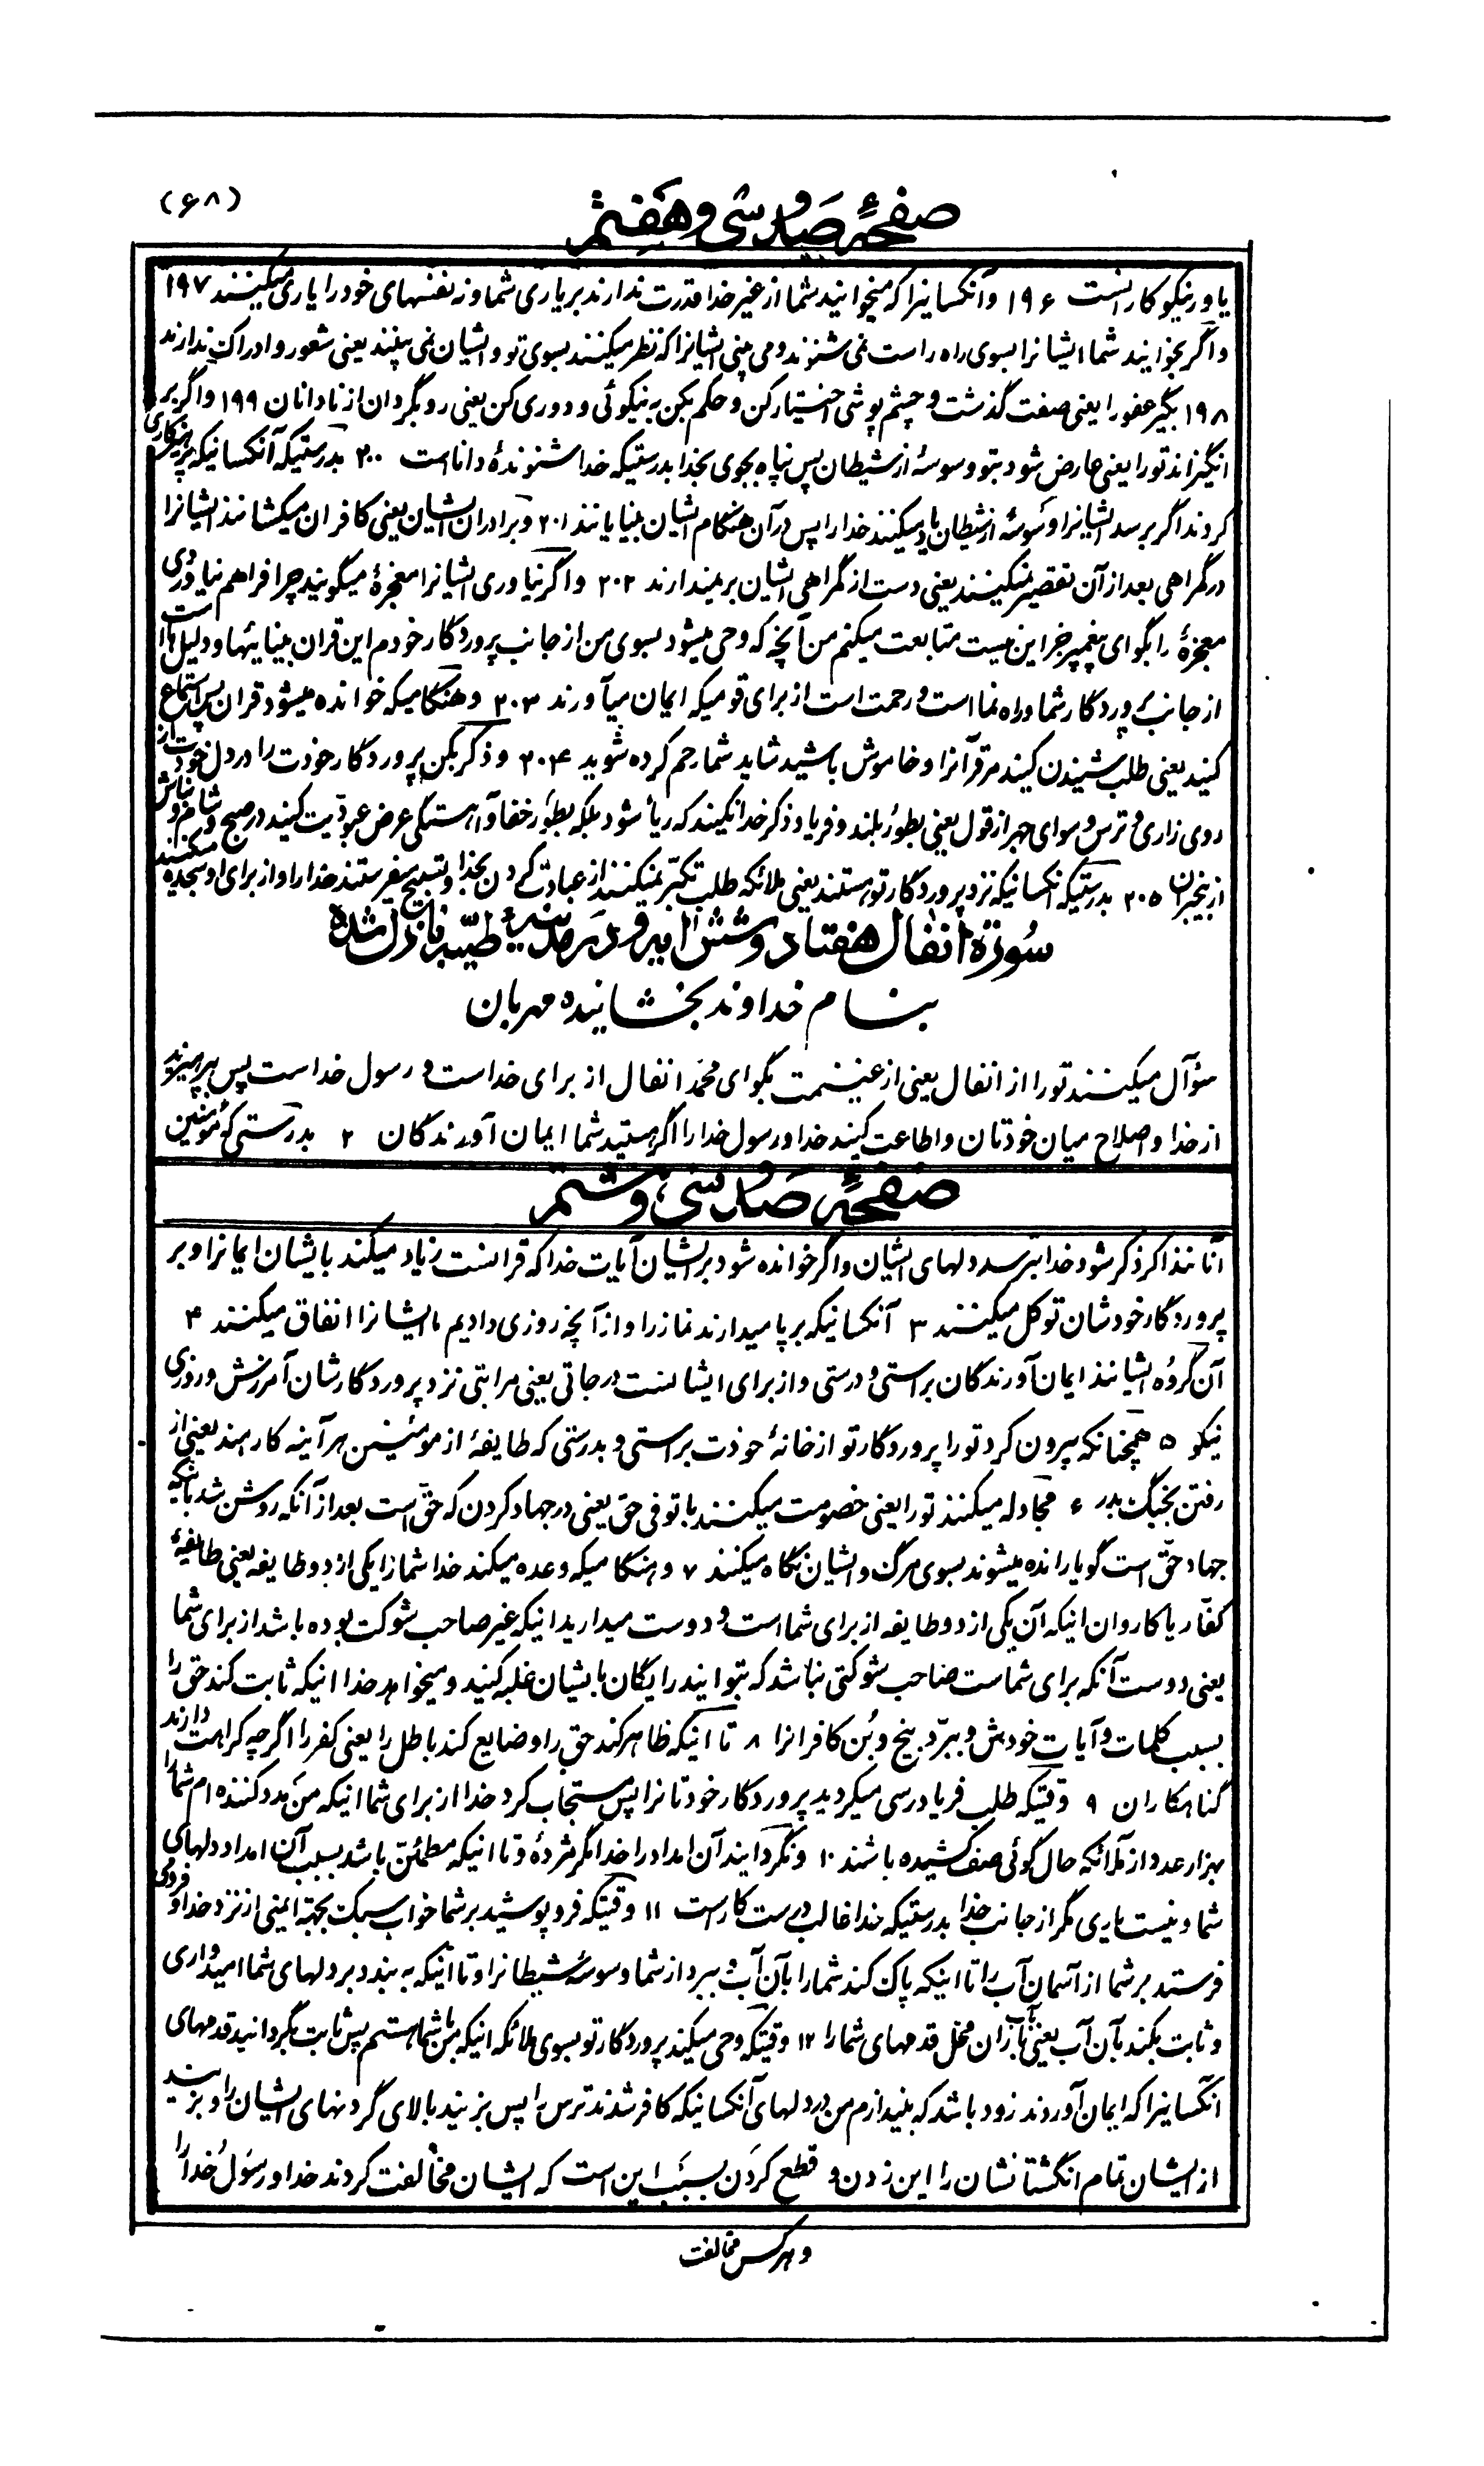 (۶۸)
صفحهٔ صد و سی و هفتم
یاور نیکوکارانست ۱۹۶ و آنکسانیرا که میخوانید شما از غیر خدا قدرت ندارند بر یاری شما و نه نفسهای خود را یاری میکنند ۱۹۷
و اگر بخوانید شما ایشانرا بسوی راه راست نمی شنوند و می بینی ایشانرا که نظر میکنند بسوی تو و ایشان نمی بینند یعنی شعور و ادراک ندارند
۱۹۸ بگیر عفو را یعنی صفت گذشت و چشم پوشی اختیار کن و حکم بکن به نیکوئی و دوری کن یعنی رو بگردان از نادانان ۱۹۹ و اگر بر
انگیزاند تو را یعنی عارض شود بتو وسوسهٔ از شیطان پس پناه بجوی بخدا بدرستیکه خدا شنوندهٔ داناست ۲۰۰ بدرستیکه آنکسانیکه پرهیزکاری
کردند اگر برسد ایشانرا وسوسهٔ از شیطان یاد میکنند خدا را پس در آن هنگام ایشان بینایانند ۲۰۱ و برادران ایشان یعنی کافران میکشانند ایشانرا
در گمراهی بعد از آن تقصیر نمیکنند یعنی دست از گمراهی ایشان برنمیدارند ۲۰۲ و اگر نیاوری ایشانرا معجزهٔ میگویند چرا فراهم نیاوردی
معجزهٔ را بگو ای پیغمبر جز این نیست متابعت میکنم من آنچه که وحی میشود بسوی من از جانب پروردگار خودم این قران بینایئها و دلیل هااست
از جانب پروردگار شما و راه نما است و رحمت است از برای قومیکه ایمان میآورند ۲۰۳ و هنگامیکه خوانده میشود قران پس استماع
کنید یعنی طلب شنیدن کنید مر قرآنرا و خاموش باشید شاید شما رحم کرده شوید ۲۰۴ و ذکر بکن پروردگار خودت را در دل خودت از
روی زاری و ترس و سوای جهر از قول یعنی بطور بلند و فریاد ذکر خدا نکنید که ریا شود بلکه بطور خفا و آهستگی عرض عبودیت کنید در صبح و شام و نباش
از بیخبران ۲۰۵ بدرستیکه آنکسانیکه نزد پروردگار تو هستند یعنی ملائکه طلب تکبر نمیکنند از عبادت کردن بخدا و تسبیح میفرستند خدا را و از برای او سجده میکنند
سورهٔ انفال هفتاد و شش آیه و در مدینهٔ طیّبه نازل شده
بنام خداوند بخشاینده مهربان
سؤال میکنند تو را از انفال یعنی از غنیمت بگو ای محمّد انفال از برای خداست و رسول خداست پس بپرهیزید
از خدا و اصلاح میان خودتان و اطاعت کنید خدا و رسول خدا را اگر هستید شما ایمان آورندگان ۲ بدرستی که مؤمنین
صفحهٔ صد و سی و هشتم
آنانند اگر ذکر شود خدا بترسد دلهای ایشان و اگر خوانده شود بر ایشان آیات خدا که قرانست زیاد میکند بایشان ایمانرا و بر
پروردگار خودشان توکل میکنند ۳ آنکسانیکه بر پا میدارند نماز را و از آنچه روزی دادیم ما ایشانرا انفاق میکنند ۴
آن گروه ایشانند ایمان آورندگان براستی و درستی و از برای ایشانست درجاتی یعنی مراتبی نزد پروردگارشان آمرزش و رزقی
نیکو ۵ همچنانکه بیرون کرد تو را پروردگار تو از خانهٔ خودت براستی و بدرستی که طایفهٔ از مومنین هر آینه کارهند یعنی از
رفتن بجنگ بدر ۶ مجادله میکنند تو را یعنی خصومت میکنند با تو فی حق یعنی در جهاد کردن که حقّ است بعد از آنکه روشن شد باینکه
جهاد حقّ است گویا رانده میشوند بسوی مرگ و ایشان نگاه میکنند ۷ و هنگامیکه وعده میکند خدا شما را یکی از دو طایفه یعنی طایفهٔ
کفّار یا کاروان اینکه آن یکی از دو طایفه از برای شما است و دوست میدارید اینکه غیر صاحب شوکت بوده باشد از برای شما
یعنی دوست آنکه برای شماست صاحب شوکتی نباشد که بتوانید رایگان بایشان غلبه کنید و میخواهد خدا اینکه ثابت کند حق را
بسبب کلمات و آیات خودش و ببرّد بیخ و بُن کافرانرا ۸ تا اینکه ظاهر کند حق را و ضایع کند باطل را یعنی کفر را اگر چه کراهت دارند
گناهکاران ۹ وقتیکه طلب فریادرسی میکردید پروردگار خودتانرا پس مستجاب کرد خدا از برای شما اینکه من مدد کننده ام شما را
بهزار عدد از ملائکه حال گوئی صف کشیده باشند ۱۰ و نگردانید آن امداد را خدا مگر مژدهٔ و تا اینکه مطمئن باشد بسبب آن امداد دلهای
شما و نیست یاری مگر از جانب خدا بدرستیکه خدا غالب درست کار است ۱۱ وقتیکه فرو پوشید بر شما خواب سبک بجهة ایمنی از نزد خدا و فرو می
فرستد بر شما از آسمان آب را تا اینکه پاک کند شما را بآن آب و ببرد از شما وسوسهٔ شیطانرا و تا اینکه به بندد بر دلهای شما امیدواری
و ثابت بکند بآن آب یعنی بآب باران محل قدمهای شما را ۱۲ وقتیکه وحی میکند پروردگار تو بسوی ملائکه اینکه من با شما هستم پس ثابت بگردانید قدمهای
آنکسانیرا که ایمان آوردند زود باشد که بیندازم من در دلهای آنکسانیکه کافر شدند ترس را پس بزنید بالای گردنهای ایشان را و بزنید
از ایشان تمام انگشتانشان را این زدن و قطع کردن بسبب این است که ایشان مخالفت کردند خدا و رسول خدا را
و هر کس مخالفت